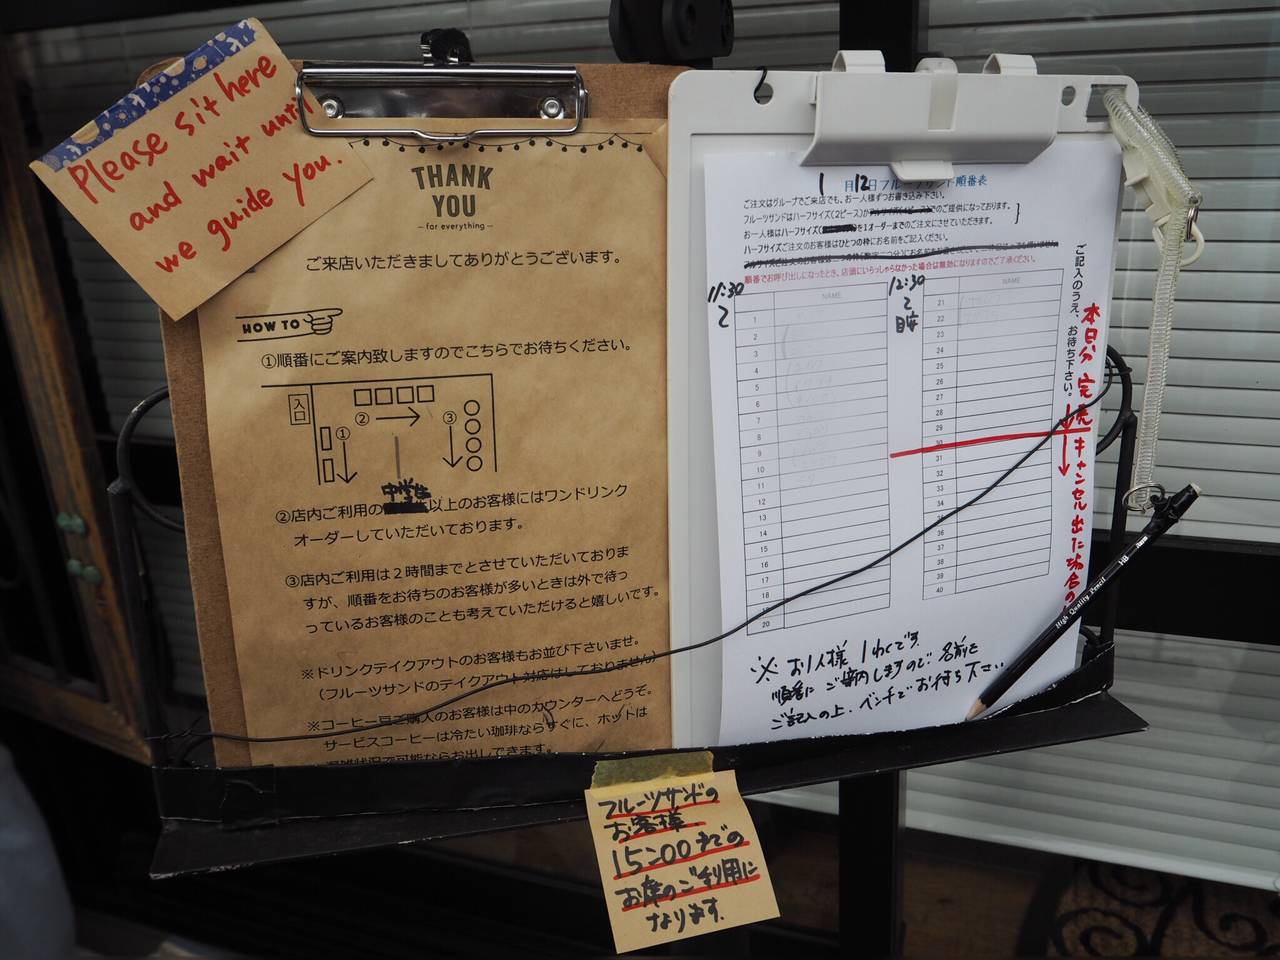 Please sit here
and wait until
we guide you.
THANK
YOU
for everything
ご来店いただきましてありがとうございます。
HOW TO
①順番にご案内致しますのでこちらでお待ちください。
入口
①
②
③
②店内ご利用の中学生以上のお客様にはワンドリンク
オーダーしていただいております。
③店内ご利用は２時間までとさせていただいておりま
すが、順番をお待ちのお客様が多いときは外で待っ
っているお客様のことも考えていただけると嬉しいです。
※ドリンクテイクアウトのお客様もお並び下さいませ。
（フルーツサンドのテイクアウト対応はしておりません）
※コーヒー豆ご購入のお客様は中のカウンターへどうぞ。
サービスコーヒーは冷たい珈琲ならすぐに、ホットは
混雑状況で可能ならお出しできます。
1月12日フルーツサンド順番表
ご注文はグループでご来店でも、お一人様ずつお書き込み下さい。
フルーツサンドはハーフサイズ(2ピース)がでのご提供になっております。
お一人様はハーフサイズを1オーダーまでのご注文にさせていただきます。
ハーフサイズご注文のお客様はひとつの枠にお名前をご記入ください。
順番でお呼び出しになったとき、店頭にいらっしゃらなかった場合は無効になりますのでご了承ください。
11:30
12:30
目安
NAME
1
2
3
4
5
6
7
8
9
10
11
12
13
14
15
16
17
18
19
20
NAME
21
22
23
24
25
26
27
28
29
30
31
36
37
38
39
40
ご記入のうえ、お待ち下さい。
本日分 完売
キャンセル出た場合の
※お1人様1わくです。
順番にご案内しますので名前を
ご記入の上、ベンチでお待ち下さい
High Quality Pencil HB
フルーツサンドの
お客様、
15:00までの
お席のご利用に
なります。